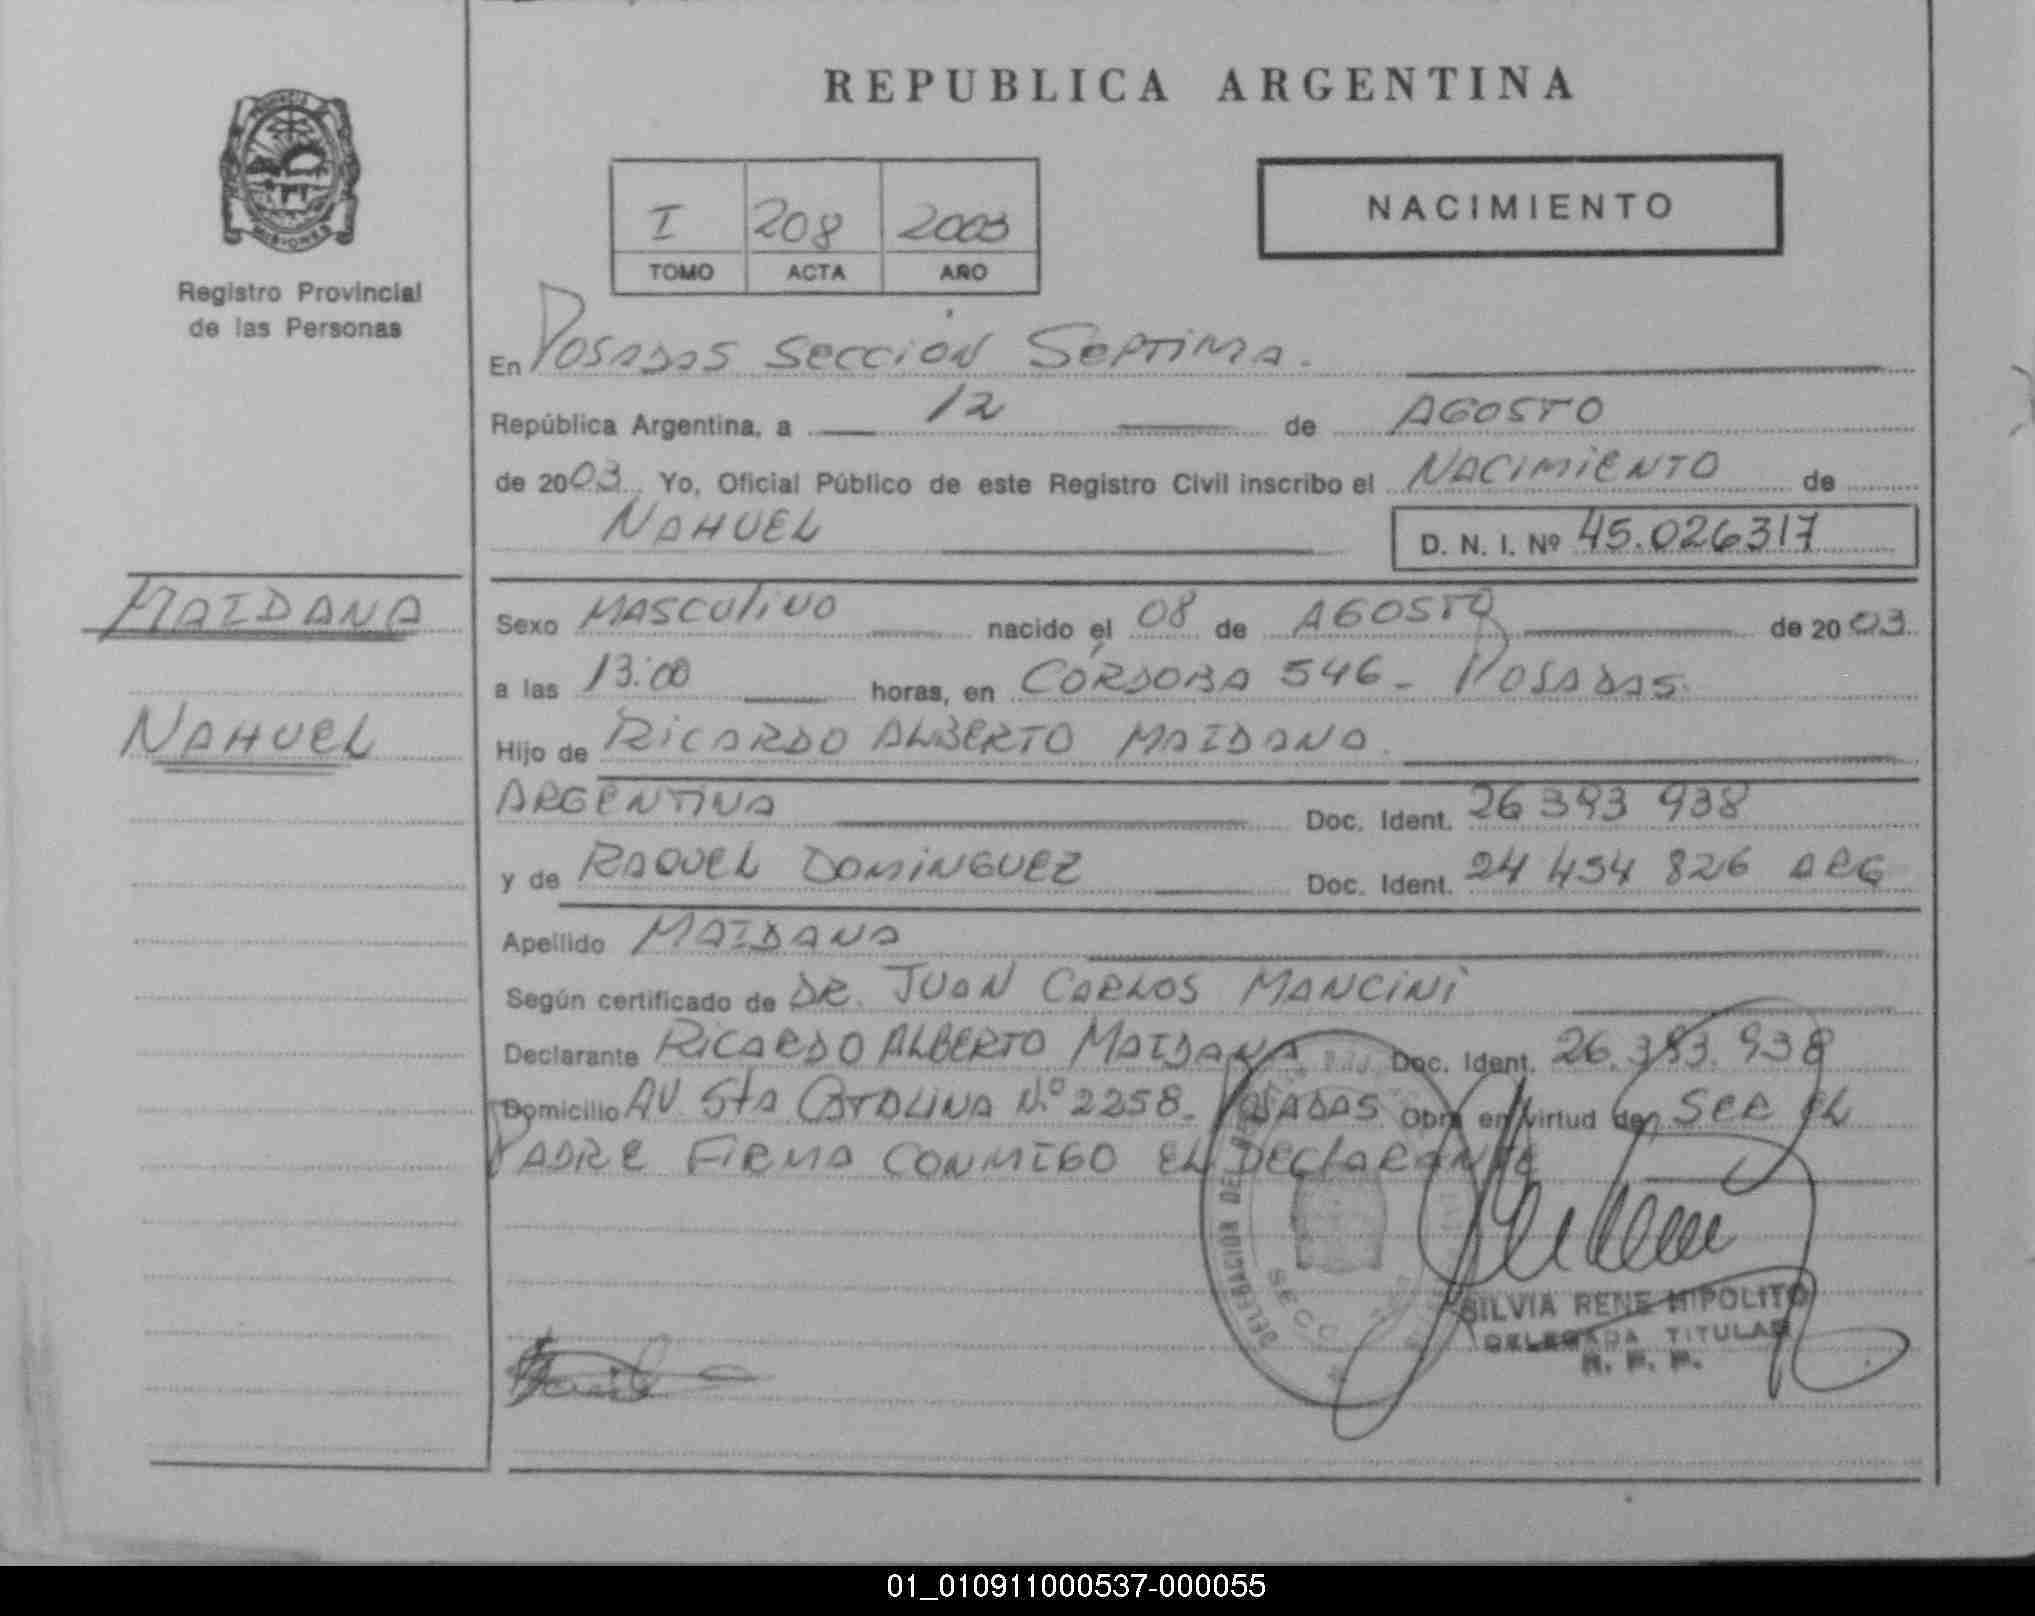 REPUBLICA ARGENTINA
MISIONES
Registro Provincial
de las Personas
I 208 2003
TOMO ACTA AÑO
NACIMIENTO
En POSADAS SECCION SEPTIMA.
República Argentina, a 12 de AGOSTO
de 2003. Yo, Oficial Público de este Registro Civil inscribo el NACIMIENTO de
NAHUEL
D. N. I. Nº 45.026317
MAIDANA
NAHUEL
Sexo MASCULINO nacido el 08 de AGOSTO de 2003.
a las 13:00 horas, en CÓRDOBA 546 - POSADAS.
Hijo de RICARDO ALBERTO MAIDANA.
ARGENTINA Doc. Ident. 26 393 938
y de RAQUEL DOMINGUEZ Doc. Ident. 24 454 826 ARG
Apellido MAIDANA
Según certificado de DR. JUAN CARLOS MANCINI
Declarante RICARDO ALBERTO MAIDANA Doc. Ident. 26.393.938
Domicilio AV STA CATALINA N.º 2258. POSADAS Obra en virtud de SER EL
PADRE FIRMA CONMIGO EL DECLARANTE
DELEGACION DEL
SECC
SILVIA RENE HIPOLITO
DELEGADA TITULAR
R. P. P.
01_010911000537-000055